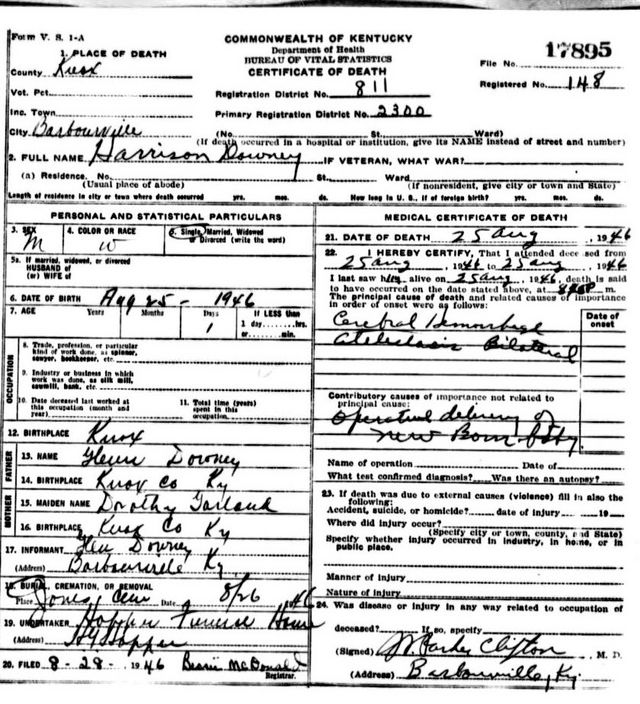 Form V. S. 1-A
COMMONWEALTH OF KENTUCKY
Department of Health
BUREAU OF VITAL STATISTICS
CERTIFICATE OF DEATH
17895
File No.
Registered No. 148
1. PLACE OF DEATH
County Knox
Vot. Pct.
Registration District No. 811
Inc. Town
Primary Registration District No. 2300
City Barbourville (No. St. Ward)
(If death occurred in a hospital or institution, give its NAME instead of street and number)
2. FULL NAME Harrison Downey IF VETERAN, WHAT WAR?
(a) Residence. No. St. Ward
(Usual place of abode) (If nonresident, give city or town and State)
Length of residence in city or town where death occurred yrs. mos. ds. How long in U. S., if of foreign birth? yrs. mos. ds.
PERSONAL AND STATISTICAL PARTICULARS
3. SEX M
4. COLOR OR RACE W
5. Single, Married, Widowed or Divorced (write the word)
5a. If married, widowed, or divorced
HUSBAND of
(or) WIFE of
6. DATE OF BIRTH Aug 25 - 1946
7. AGE Years Months Days 1 If LESS than
1 day......hrs.
or......min.
OCCUPATION
8. Trade, profession, or particular
kind of work done, as spinner,
sawyer, bookkeeper, etc.
9. Industry or business in which
work was done, as silk mill,
sawmill, bank, etc.
10. Date deceased last worked at
this occupation (month and
year)
11. Total time (years)
spent in this
occupation
12. BIRTHPLACE Knox
FATHER
13. NAME Glenn Downey
14. BIRTHPLACE Knox Co Ky
MOTHER
15. MAIDEN NAME Dorothy Garland
16. BIRTHPLACE Knox Co Ky
17. INFORMANT Glen Downey
(Address) Barbourville Ky
18. BURIAL, CREMATION, OR REMOVAL
Place Jones Cem Date 8/26 1946
19. UNDERTAKER Hopper Funeral Home
(Address) Hopper
20. FILED 8-28-1946 McDonald
Registrar.
MEDICAL CERTIFICATE OF DEATH
21. DATE OF DEATH 25 Aug, 1946
22. I HEREBY CERTIFY, That I attended deceased from
25 aug, 1946 to 25 aug, 1946
I last saw him alive on 25 aug, 1946, death is said
to have occurred on the date stated above, at m.
The principal cause of death and related causes of importance
in order of onset were as follows:
Date of
onset
Cerebral Hemorrhage
Atelectasis Bilateral
Contributory causes of importance not related to
principal cause:
operative delivery of
new Born baby
Name of operation Date of
What test confirmed diagnosis? Was there an autopsy?
23. If death was due to external causes (violence) fill in also the
following:
Accident, suicide, or homicide? date of injury 19
Where did injury occur?
(Specify city or town, county, and State)
Specify whether injury occurred in industry, in home, or in
public place.
Manner of injury
Nature of injury
24. Was disease or injury in any way related to occupation of
deceased? If so, specify
(Signed) Parker Clifton, M. D.
(Address) Barbourville, Ky.